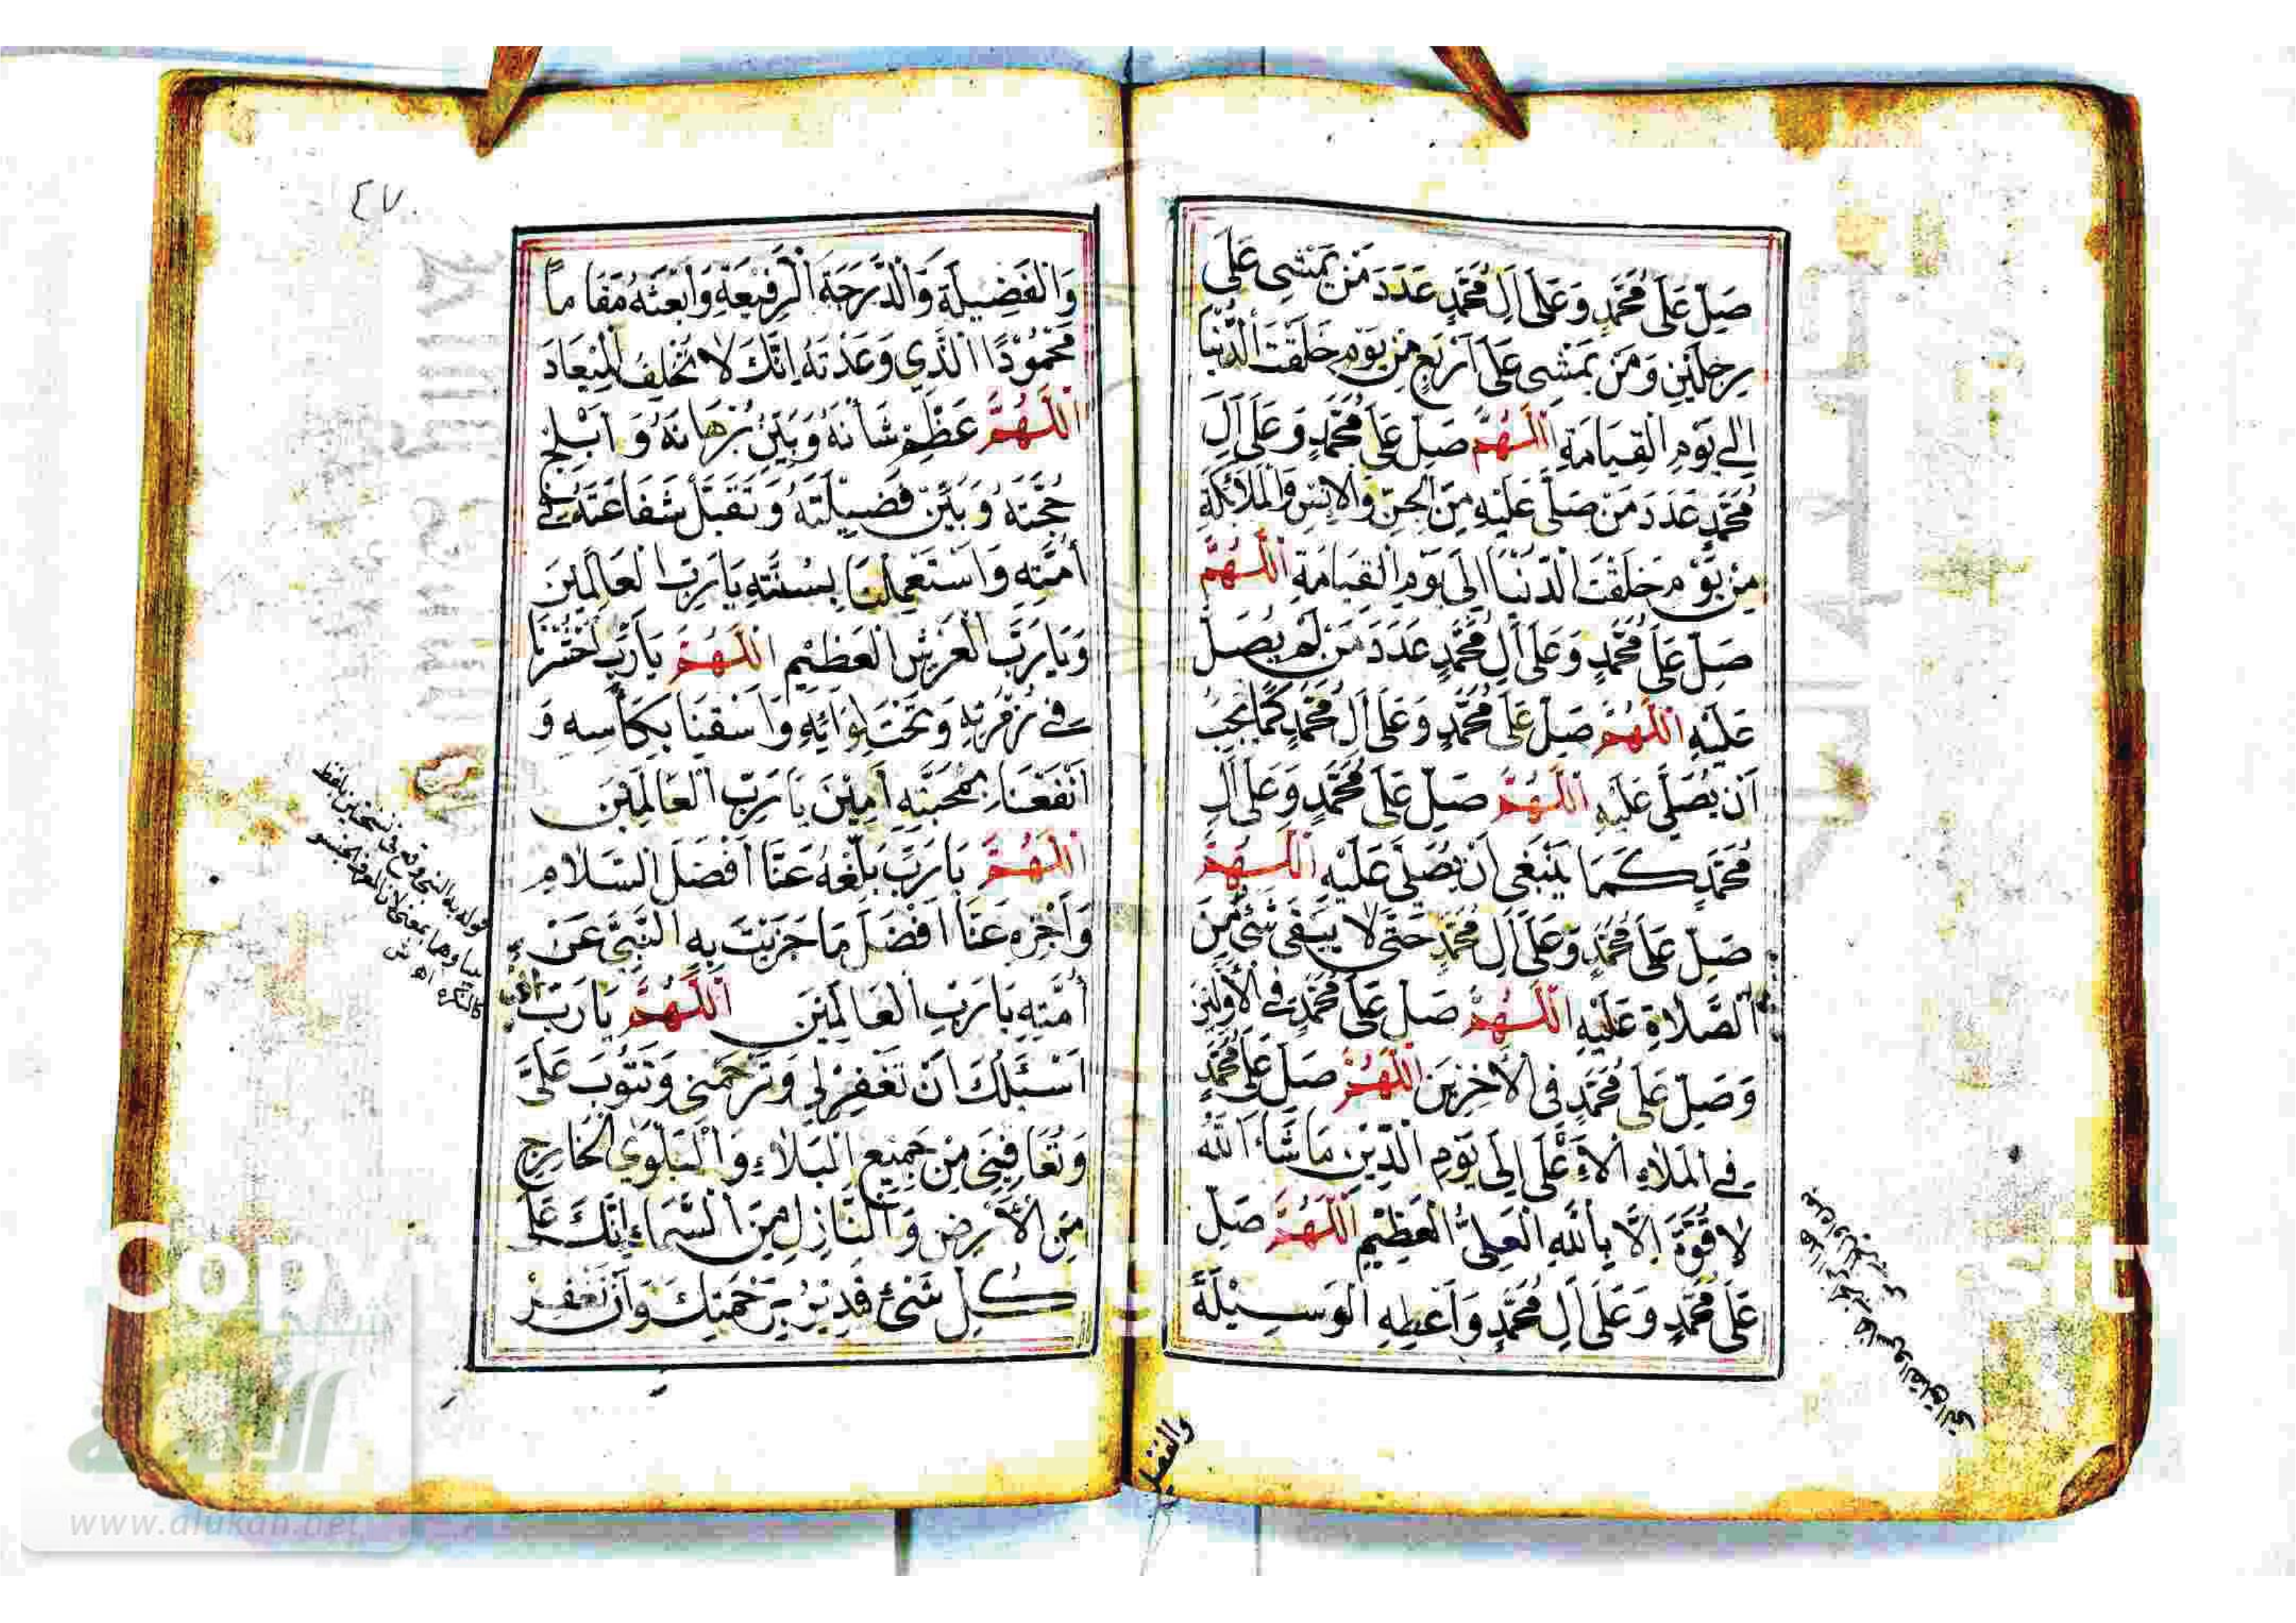 صَلِّ عَلَى مُحَمَّدٍ وَعَلَى اٰلِ مُحَمَّدٍ عَدَدَ مَنْ يَمْشِي عَلَى
رِجْلَيْنِ وَمَنْ يَمْشِي عَلَى اَرْبَعٍ مِنْ يَوْمِ خَلَقْتَ الدُّنْيَا
اِلَى يَوْمِ الْقِيَامَةِ اَللّٰهُمَّ صَلِّ عَلَى مُحَمَّدٍ وَعَلَى اٰلِ
مُحَمَّدٍ عَدَدَ مَنْ صَلَّى عَلَيْهِ مِنَ الْجِنِّ وَالْاِنْسِ وَالْمَلَائِكَةِ
مِنْ يَوْمِ خَلَقْتَ الدُّنْيَا اِلَى يَوْمِ الْقِيَامَةِ اَللّٰهُمَّ
صَلِّ عَلَى مُحَمَّدٍ وَعَلَى اٰلِ مُحَمَّدٍ عَدَدَ مَنْ لَمْ يُصَلِّ
عَلَيْهِ اَللّٰهُمَّ صَلِّ عَلَى مُحَمَّدٍ وَعَلَى اٰلِ مُحَمَّدٍ كَمَا يَجِبُ
اَنْ يُصَلَّى عَلَيْهِ اَللّٰهُمَّ صَلِّ عَلَى مُحَمَّدٍ وَعَلَى اٰلِ
مُحَمَّدٍ كَمَا يَنْبَغِي اَنْ يُصَلَّى عَلَيْهِ اَللّٰهُمَّ
صَلِّ عَلَى مُحَمَّدٍ وَعَلَى اٰلِ مُحَمَّدٍ حَتَّى لَا يَبْقَى شَيْءٌ مِنَ
الصَّلَاةِ عَلَيْهِ اَللّٰهُمَّ صَلِّ عَلَى مُحَمَّدٍ فِي الْاَوَّلِينَ
وَصَلِّ عَلَى مُحَمَّدٍ فِي الْاٰخِرِينَ اَللّٰهُمَّ صَلِّ عَلَى مُحَمَّدٍ
فِي الْمَلَاءِ الْاَعْلَى اِلَى يَوْمِ الدِّينِ مَا شَاءَ اللّٰهُ
لَا قُوَّةَ اِلَّا بِاللّٰهِ الْعَلِيِّ الْعَظِيمِ اَللّٰهُمَّ صَلِّ
عَلَى مُحَمَّدٍ وَعَلَى اٰلِ مُحَمَّدٍ وَاَعْطِهِ الْوَسِيلَةَ
٤٧
وَالْفَضِيلَةَ وَالدَّرَجَةَ الرَّفِيعَةَ وَابْعَثْهُ مَقَامًا
مَحْمُودًا الَّذِي وَعَدْتَهُ اِنَّكَ لَا تُخْلِفُ الْمِيعَادَ
اَللّٰهُمَّ عَظِّمْ شَأْنَهُ وَبَيِّنْ بُرْهَانَهُ وَاَبْلِجْ
حُجَّتَهُ وَبَيِّنْ فَضِيلَتَهُ وَتَقَبَّلْ شَفَاعَتَهُ فِي
اُمَّتِهِ وَاسْتَعْمِلْنَا بِسُنَّتِهِ يَا رَبَّ الْعَالَمِينَ
وَيَا رَبَّ الْعَرْشِ الْعَظِيمِ اَللّٰهُمَّ يَا رَبِّ احْشُرْنَا
فِي زُمْرَتِهِ وَتَحْتَ لِوَائِهِ وَاَسْقِنَا بِكَأْسِهِ وَ
اَنْفَعْنَا بِمَحَبَّتِهِ اٰمِينَ يَا رَبَّ الْعَالَمِينَ
اَللّٰهُمَّ يَا رَبِّ بَلِّغْهُ عَنَّا اَفْضَلَ السَّلَامِ
وَاَجْزِهِ عَنَّا اَفْضَلَ مَا جَزَيْتَ بِهِ النَّبِيَّ عَنْ
اُمَّتِهِ يَا رَبَّ الْعَالَمِينَ اَللّٰهُمَّ يَا رَبِّ
اَسْئَلُكَ اَنْ تَغْفِرَ لِي وَتَرْحَمَنِي وَتَتُوبَ عَلَيَّ
وَتُعَافِيَنِي مِنْ جَمِيعِ الْبَلَاءِ وَالْبَلْوَى الْخَارِجِ
مِنَ الْاَرْضِ وَالنَّازِلِ مِنَ السَّمَاءِ اِنَّكَ عَلَى
كُلِّ شَيْءٍ قَدِيرٌ بِرَحْمَتِكَ وَاَنْ تَغْفِرَ
Copy
sit
شبكة
الألوكة
www.alukah.net